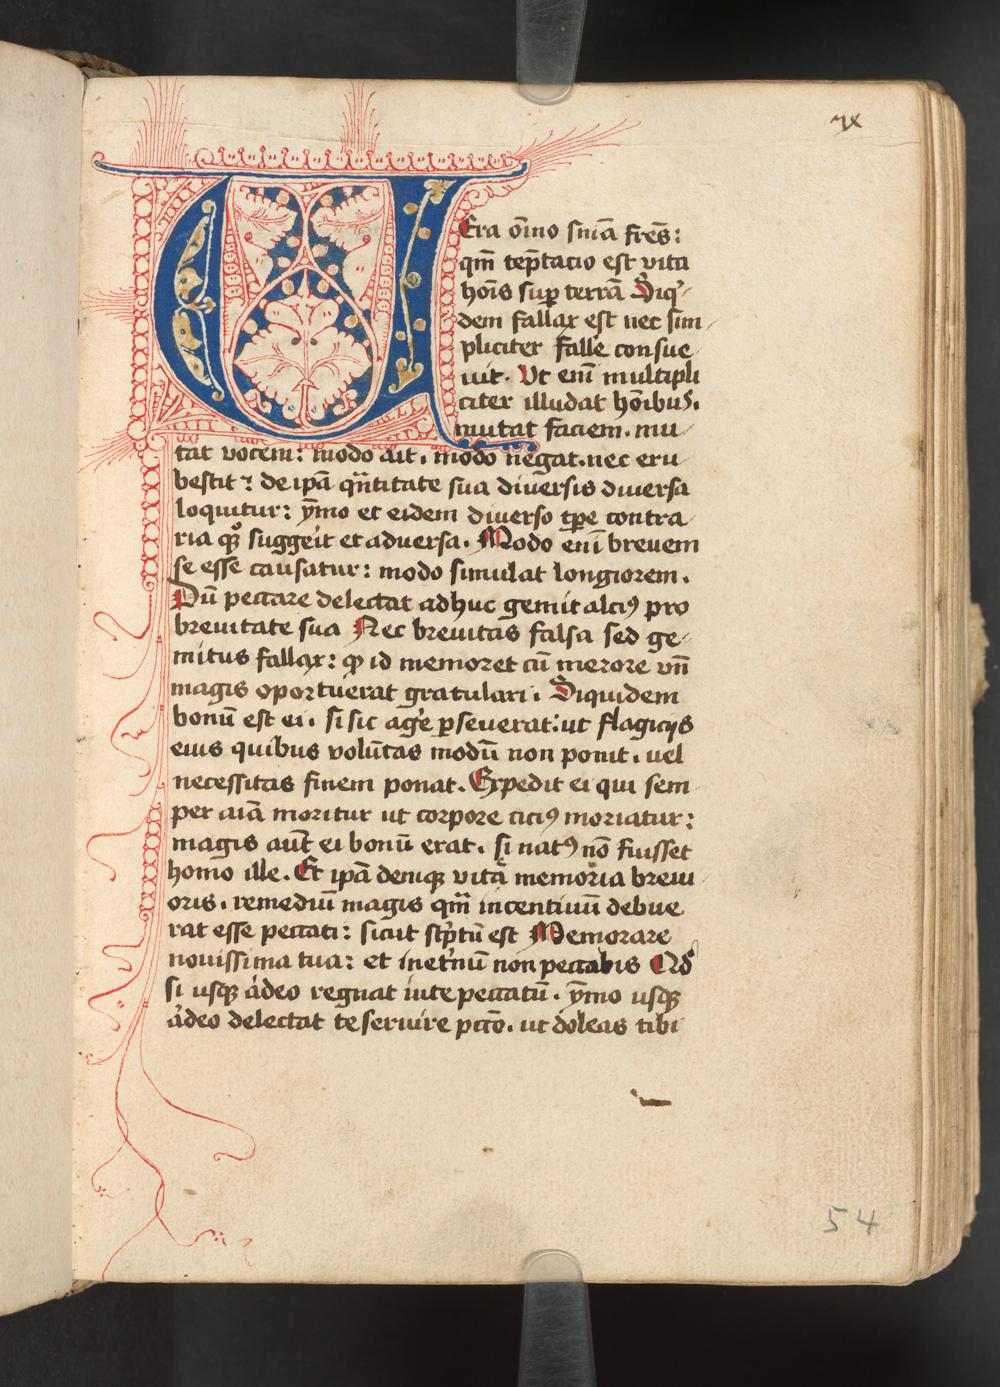 ꝛx
UEra oīno sn̄ia fr̄es:
qm̄ tēptacio est vita
hoīs suꝑ terrā Siq᷒
dem fallax est nec sim
pliciter falle᷒ consue
uit. Ut enī multipli
citer illudat hōibus.
mutat faciem. mu
tat vocem: modo ait. modo negat. nec eru
bescit: de ipā qn̄titate sua diuersis diuersa
loquitur: ymo et eidem diuerso tꝑe contra
ria qͦꝫ sugge᷒it et aduersa. Modo enī breuem
se esse causatur: modo simulat longiorem.
Dū peccare delectat adhuc gemit alciꝰ pro
breuitate sua Nec breuitas falsa sed ge
mitus fallax: ꝙ id memoret cū merore vn̄
magis oportuerat gratulari. Siquidem
bonū est ei. si sic age᷒ ꝑseuerat: ut flagicijs
eius quibus volūtas modū non ponit. uel
necessitas finem ponat. Expedit ei qui sem
per aīā moritur ut corpore ciciꝰ moriatur:
magis aut̄ ei bonū erat. si natꝰ nō fuisset
homo ille. Et ipā deniqꝫ vitā memoria breui
oris. remediū magis qm̄ incentiuū debue
rat esse peccati: sicut sc̄ptū est Memorare
nouissima tua: et inet᷒nū non peccabis Qd̄
si usqꝫ adeo regnat in te peccatū. ymo usqꝫ
adeo delectat te seruire pcc̄o. ut doleas tibi
54